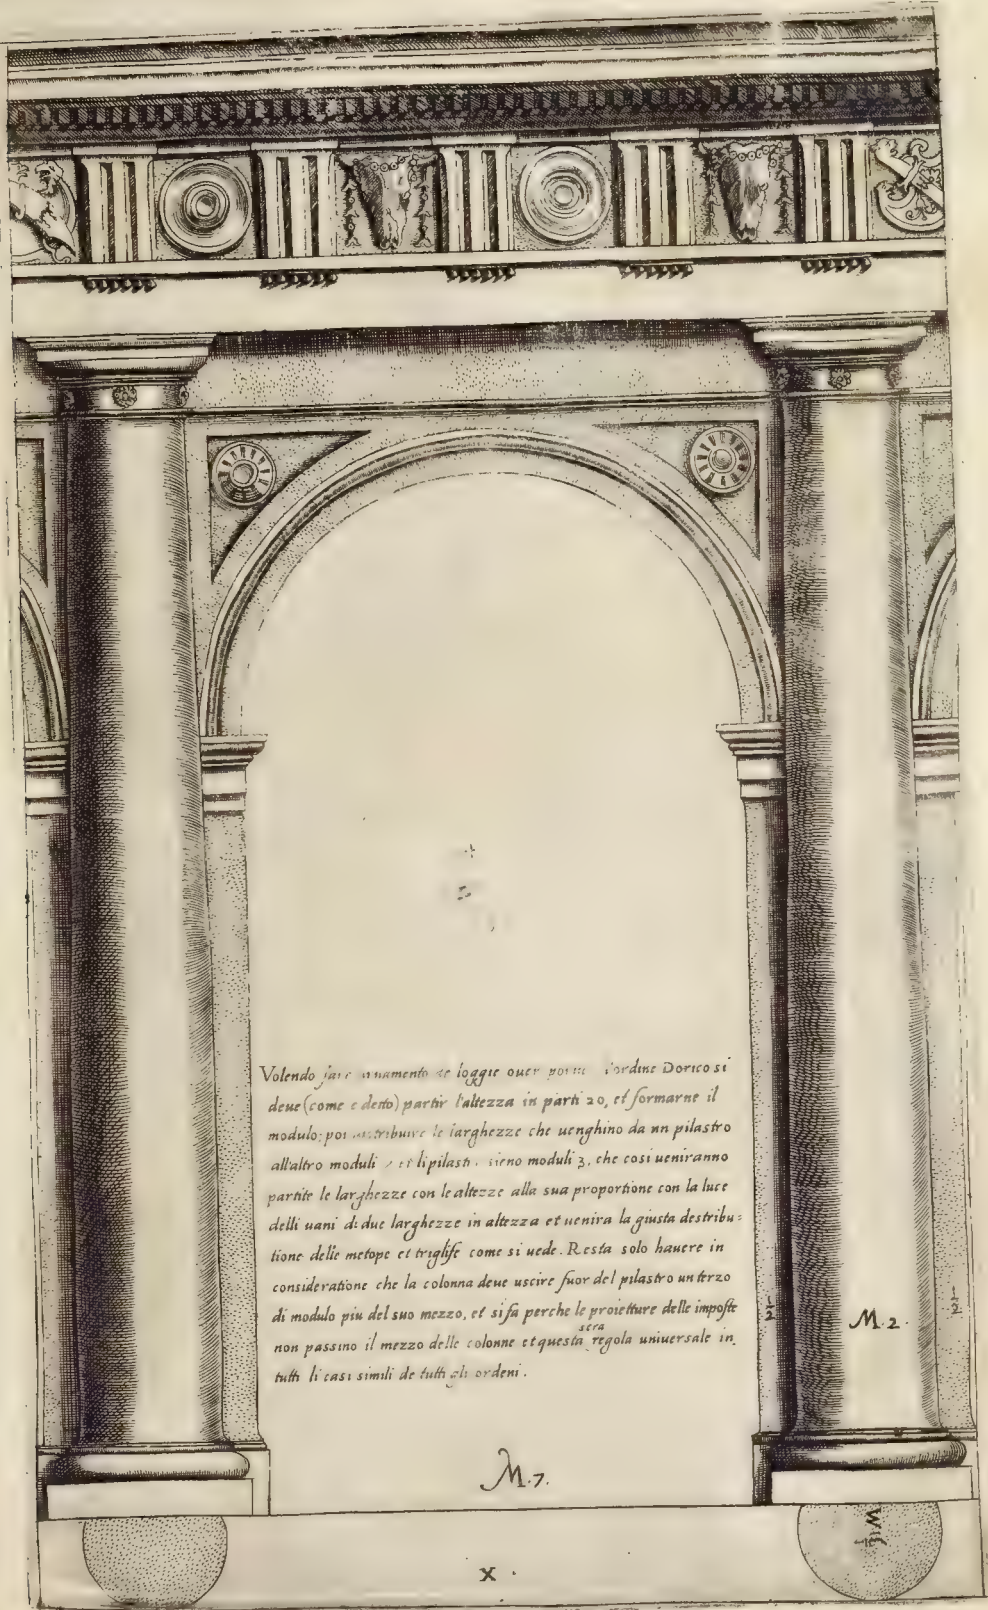 Volendo fare ornamento de loggie ouer l'ordine Dorico si
deue (come e detto) partir l'altezza in parti 20, et formarne il
modulo; poi distribuire le larghezze che uenghino da un pilastro
all'altro moduli et li pilastri sieno moduli 3, che cosi ueniranno
partite le larghezze con le altezze alla sua proportione con la luce
delli uani di due larghezze in altezza et uenira la giusta destribu=
tione delle metope et triglife come si uede. Resta solo hauere in
consideratione che la colonna deue uscire fuor del pilastro un terzo
di modulo piu del suo mezzo, et si fa perche le proietture delle imposte
non passino il mezzo delle colonne et questa sera regola uniuersale in
tutti li casi simili de tutti gli ordeni.
1/2
M.2.
1/2
M.7.
X